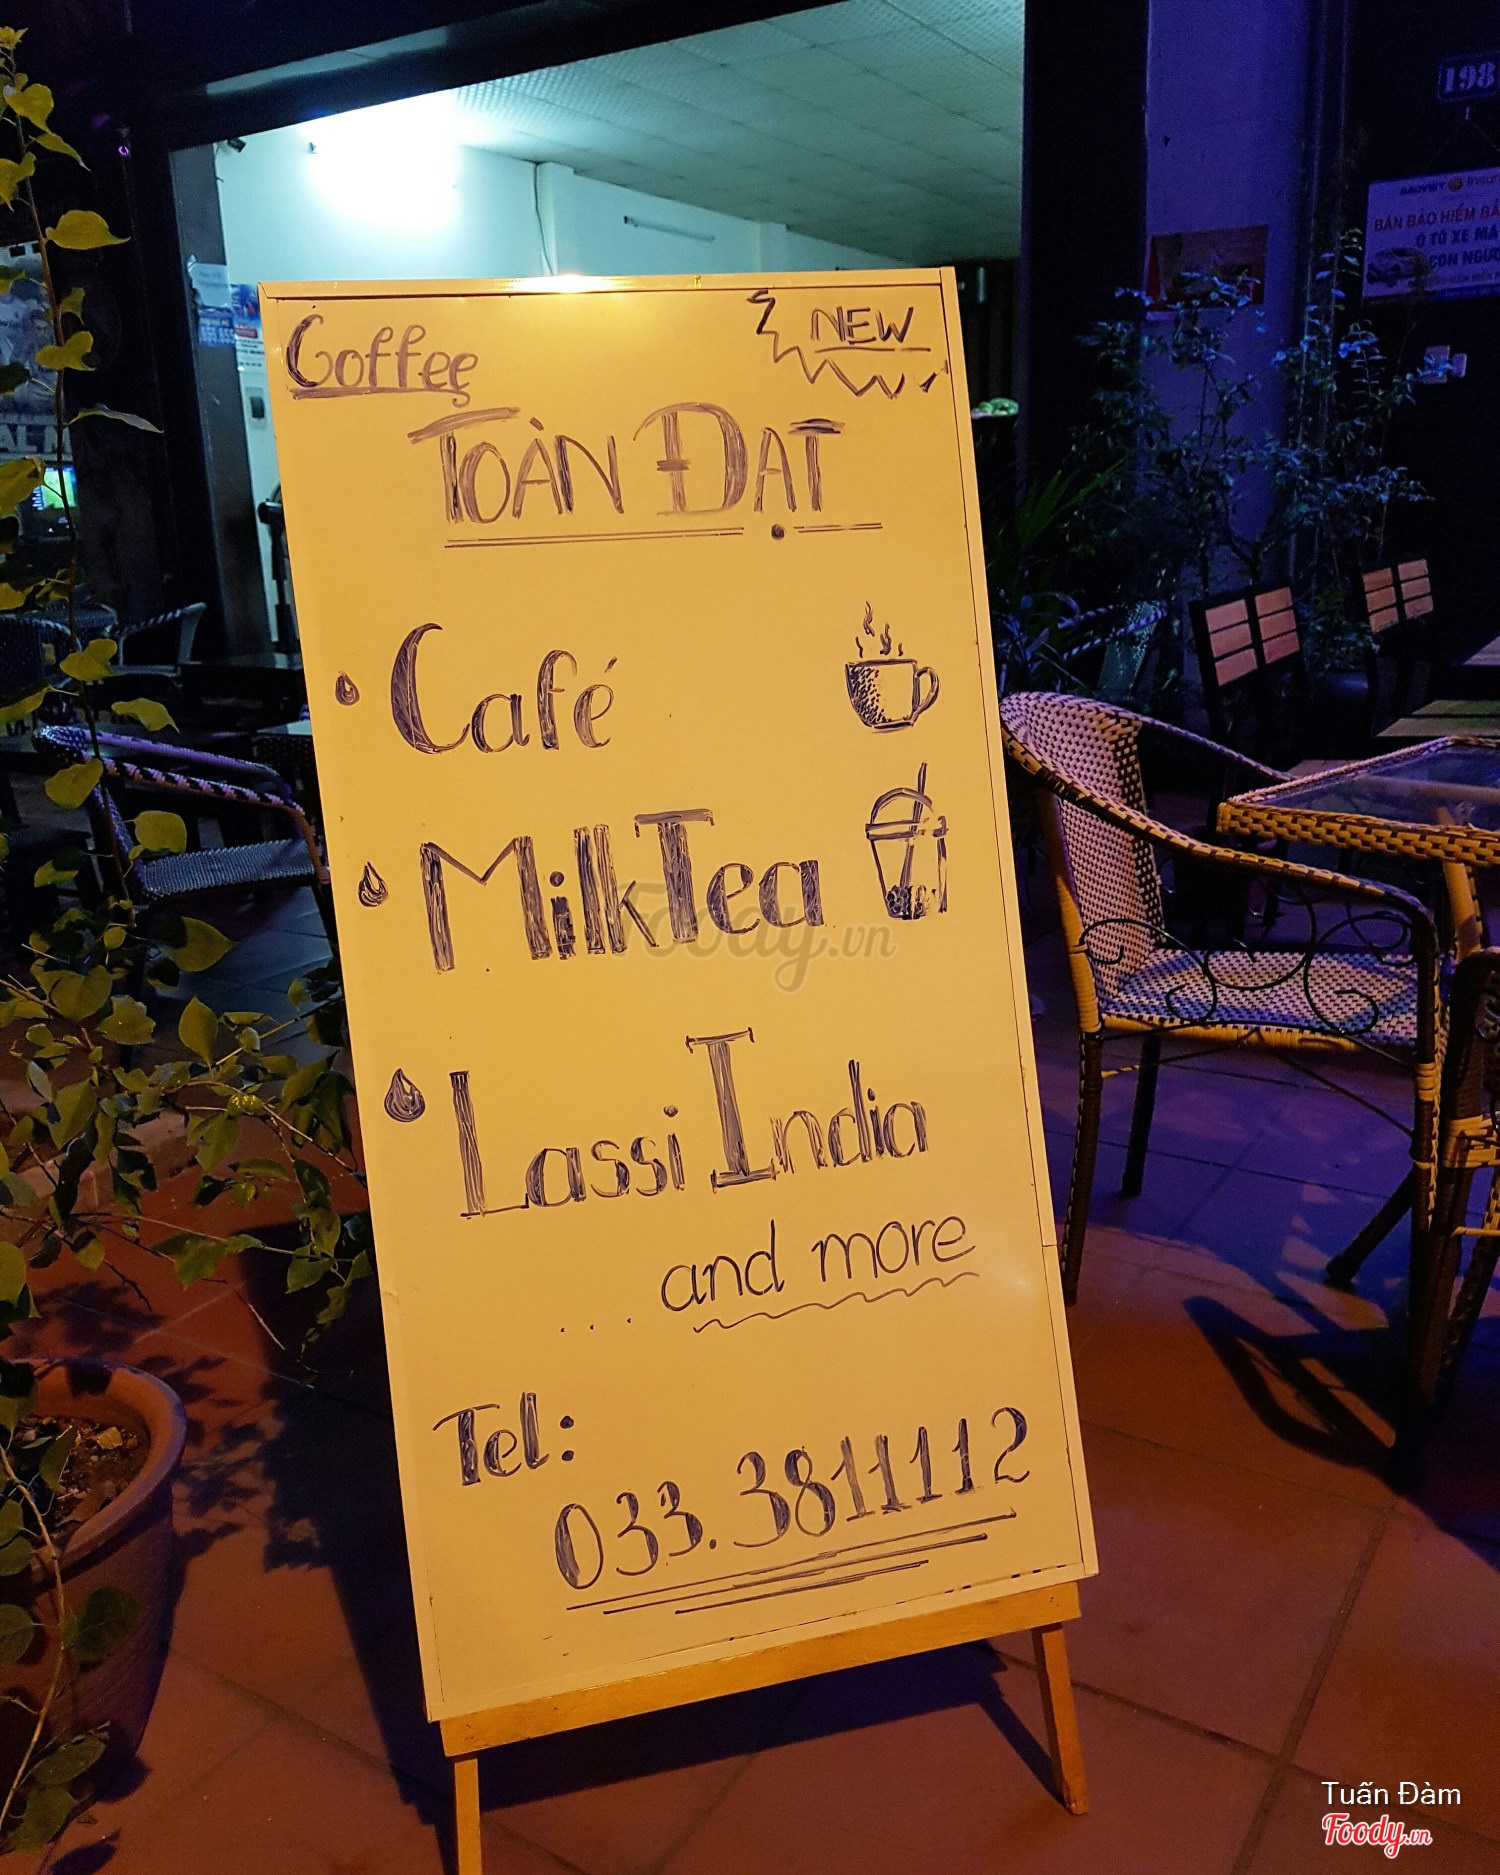 Coffee
NEW
TOÀN ĐẠT
Café
MilkTea
Lassi India
....and more
Tel:
033.3811112
198
BAOVIET
BÁN BẢO HIỂM
Ô TÔ XE
CON NGƯỜ
Foody.vn
Tuấn Đàm
Foody.vn